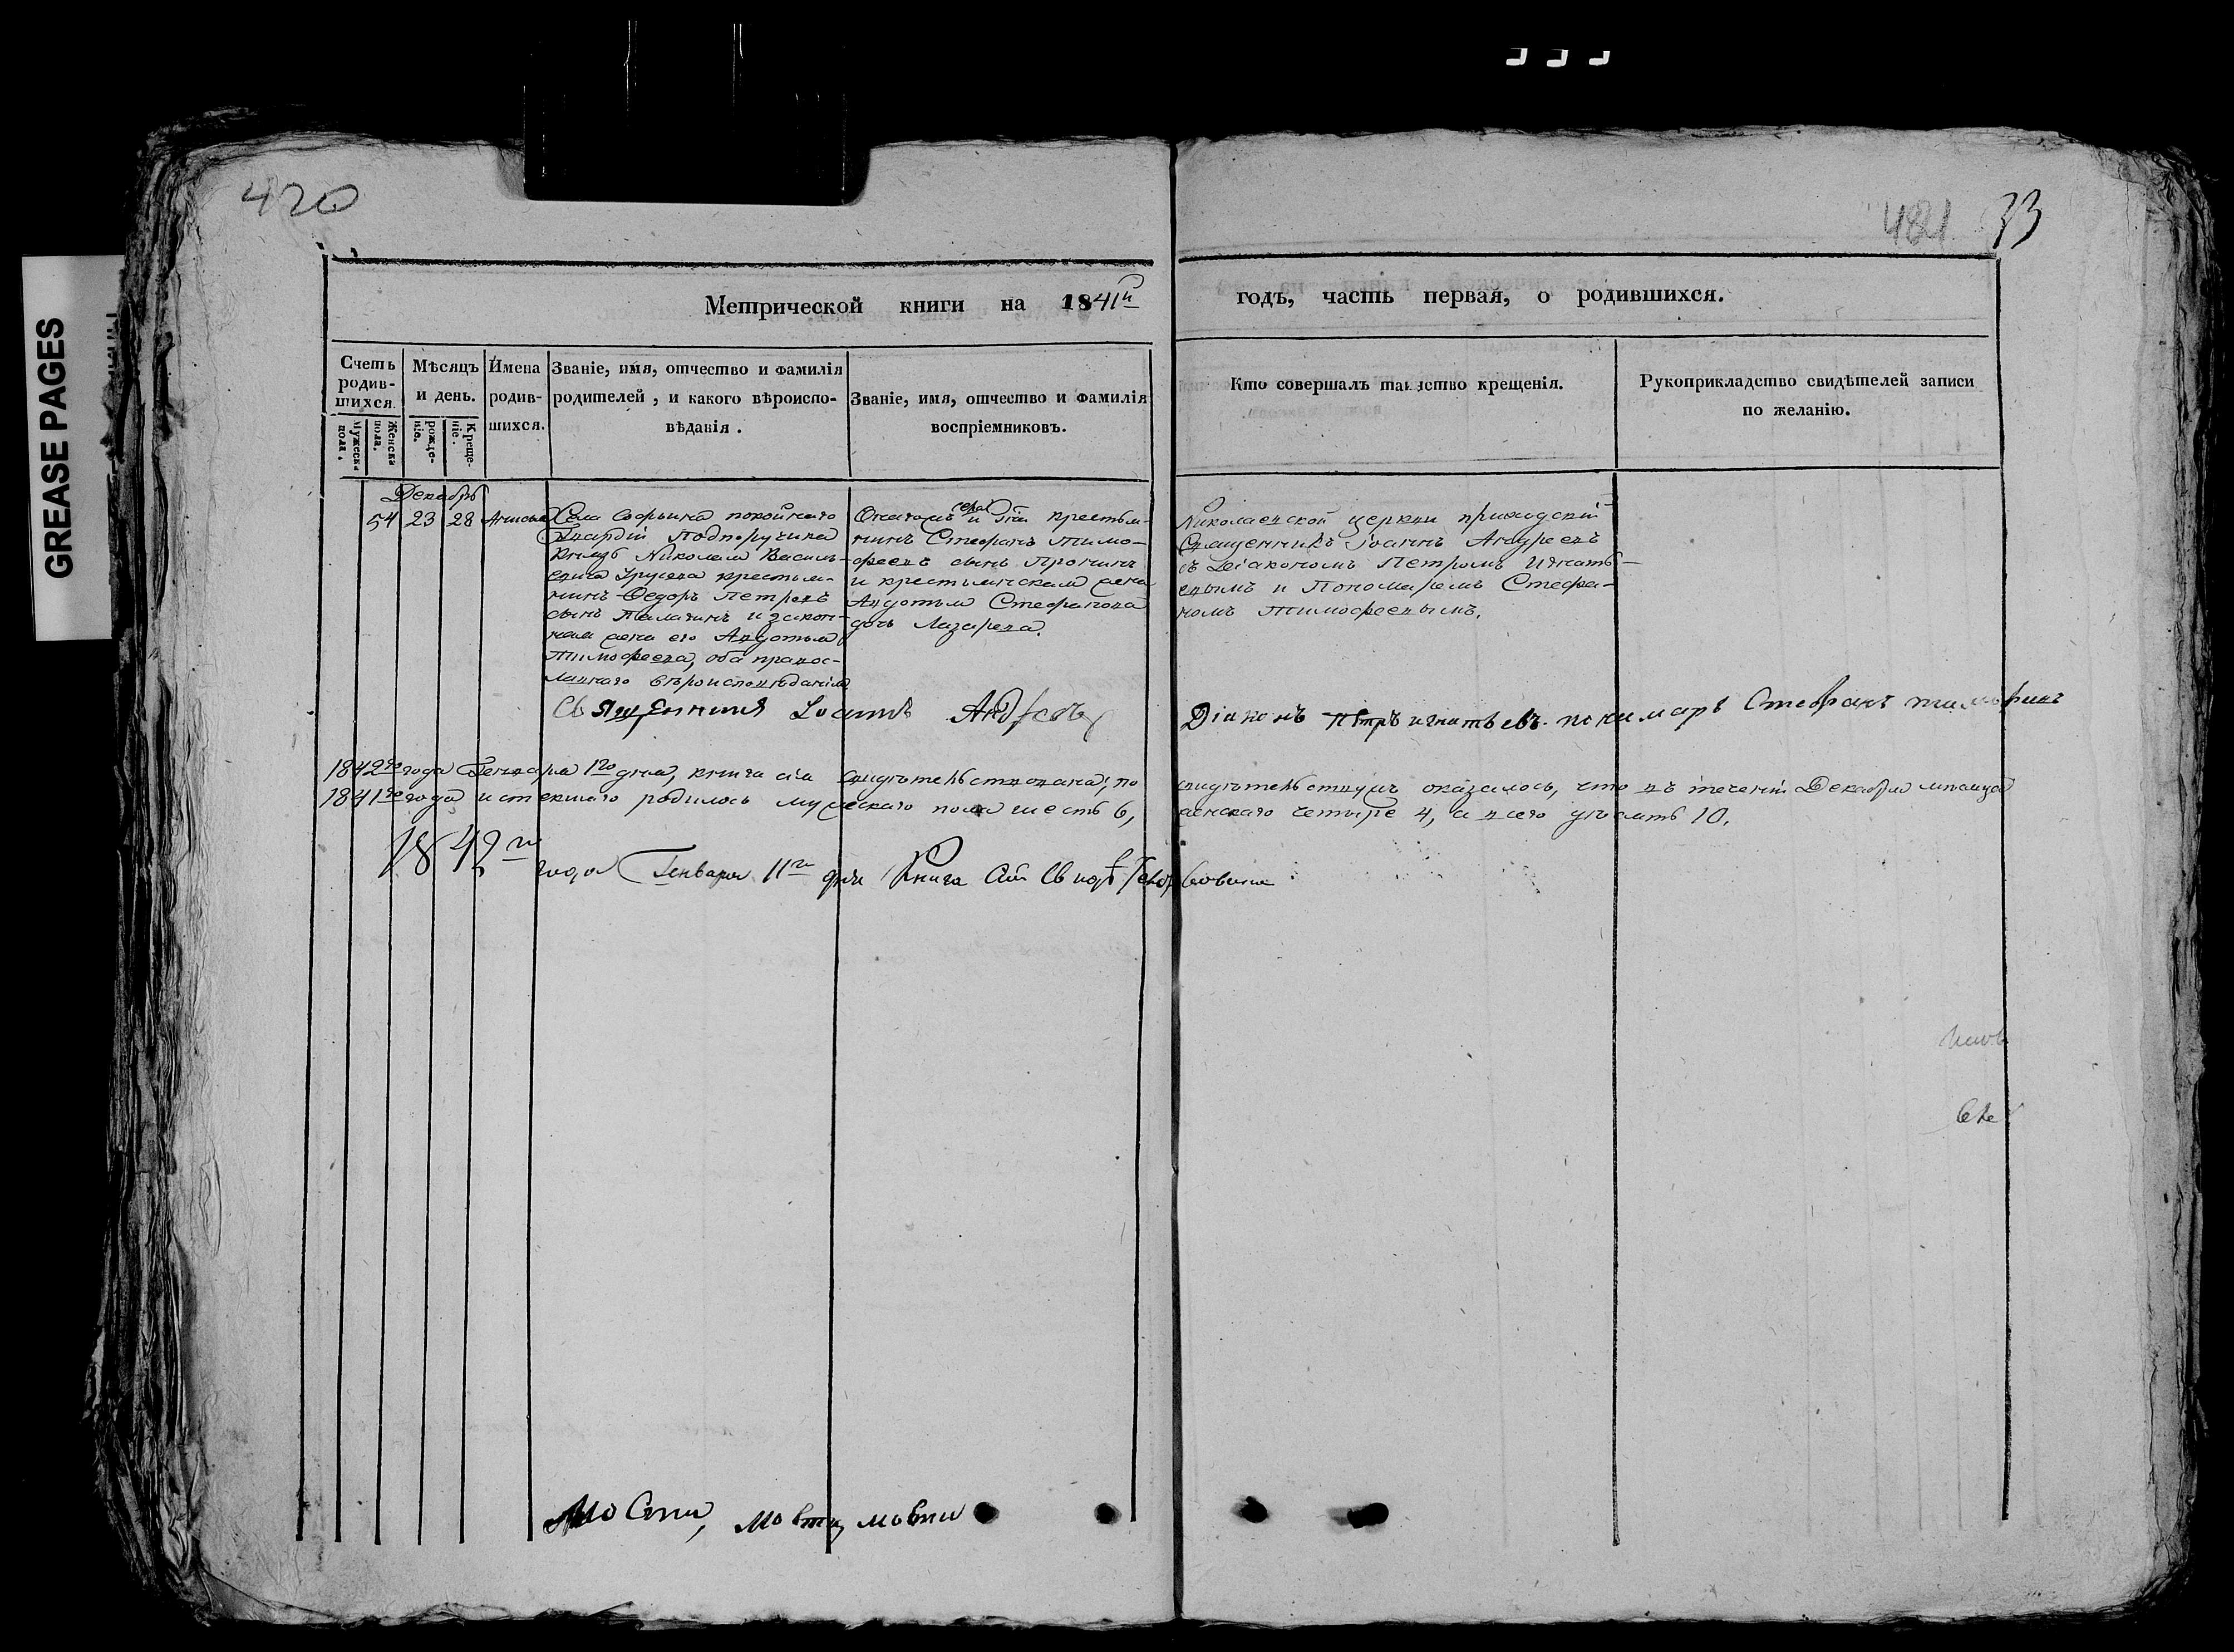 GREASE PAGES
420
481 33
Метрической книги на 1841й
годъ, часть первая, о родившихся.
Счетъ родив-шихся.
Мужеска пола.
Женска пола.
Мѣсяцъ и день.
рожде-нiе.
Креще-нiе.
Имена родив-шихся.
Званiе, имя, отчество и фамилiя
родителей, и какого вѣроиспо-
вѣданiя.
Званiе, имя, отчество и фамилiя
воспрiемниковъ.
Кто совершалъ таинство крещенiя.
Рукоприкладство свидѣтелей записи
по желанiю.
Декабрь
54 23 28
Села Софьина покойнаго
Гвардiи Подпоручика
Князь Николая Василь-
евича Урусова крестья-
нинъ Ѳедоръ Петровъ
сынъ и закон-
ная жена его Авдотья
Тимофеева, оба правос-
лавнаго вѣроисповѣданiя
села
Онагожъ и крестья-
нинъ Стефанъ Тимо-
феевъ сынъ Пронинъ
и крестьянская жена
Авдотья Стефанова
дочь Лазарева.
Николаевской церкви приходскiй
Священникъ Iоаннъ Андреевъ
съ Дiакономъ Петромъ Игнать-
евымъ и Пономаремъ Стефа-
номъ Тимофеевымъ.
Священникъ Iоаннъ Андреевъ
Дiаконъ Петръ игнатьевъ. пономарь Стефанъ
1842го года Генваря 1го дня, книга сiя свидѣтельствована; по свидѣтельствумъ оказалось, что въ теченiи Декабря мѣсяца
1841го года истекшаго родилось мужескаго пола шесть 6, женскаго четыре 4, а всего десять 10.
1842го года Генваря 11го дня Книга Сiя